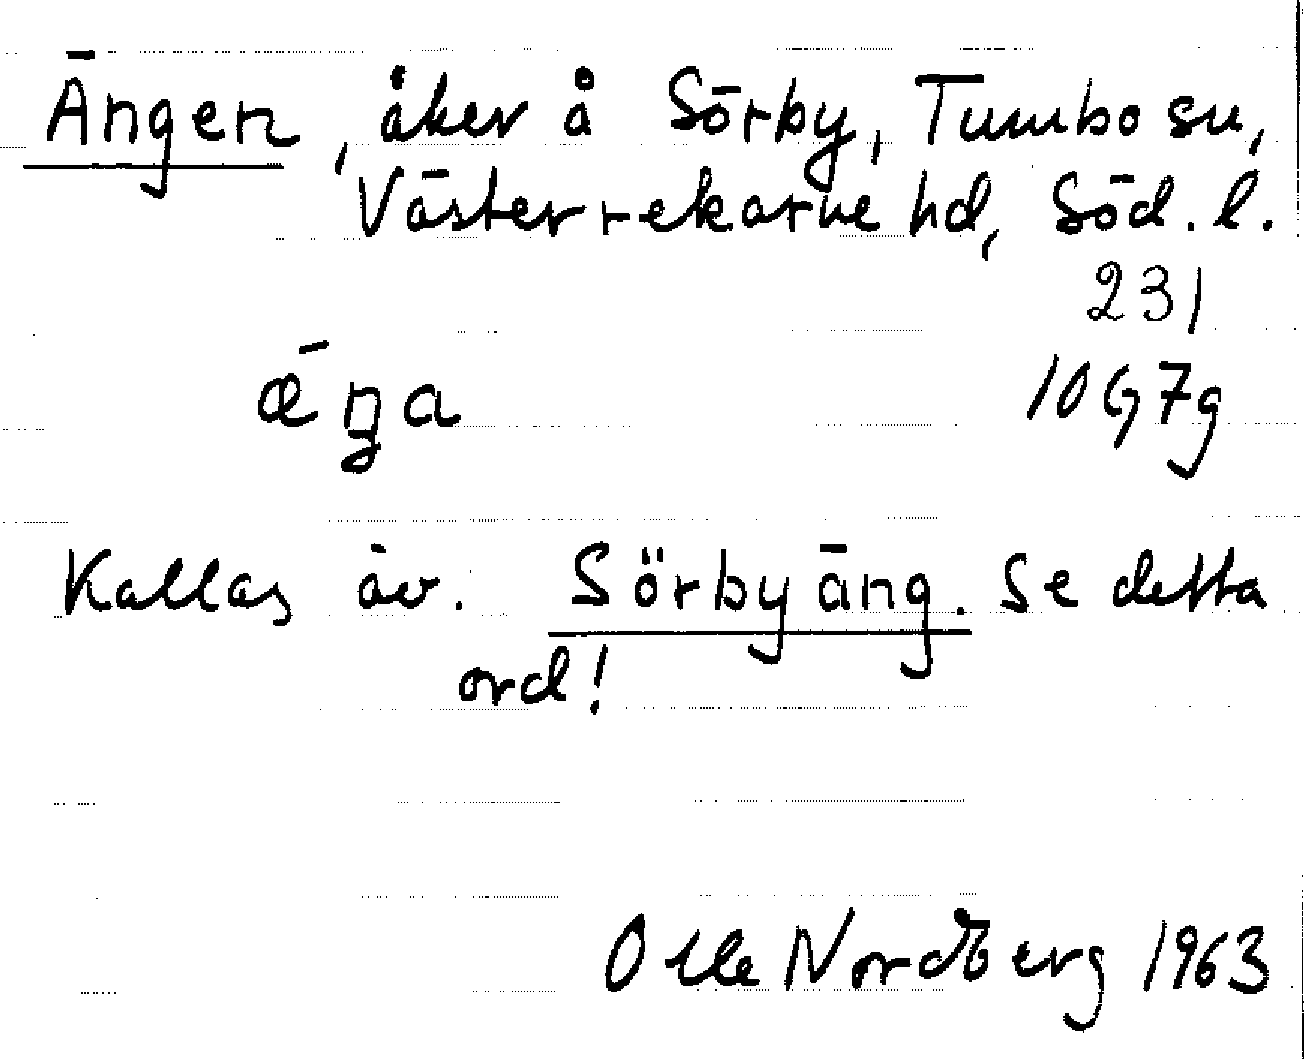 Ängen, åker å Sörby, Tumbo sn,
Västerrekarne hd, Söd. l.
231
10G7g
Kallas äv. Sörbyäng. Se detta
ord!
Olle Nordberg 1963